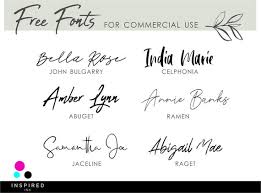 Free Fonts FOR COMMERCIAL USE
Bella Rose
JOHN BULGARRY
India Marie
CELPHONIA
Amber Lynn
ABUGET
Annie Banks
RAMEN
Samantha Jo
JACELINE
Abigail Mae
RAGET
INSPIRED
INK